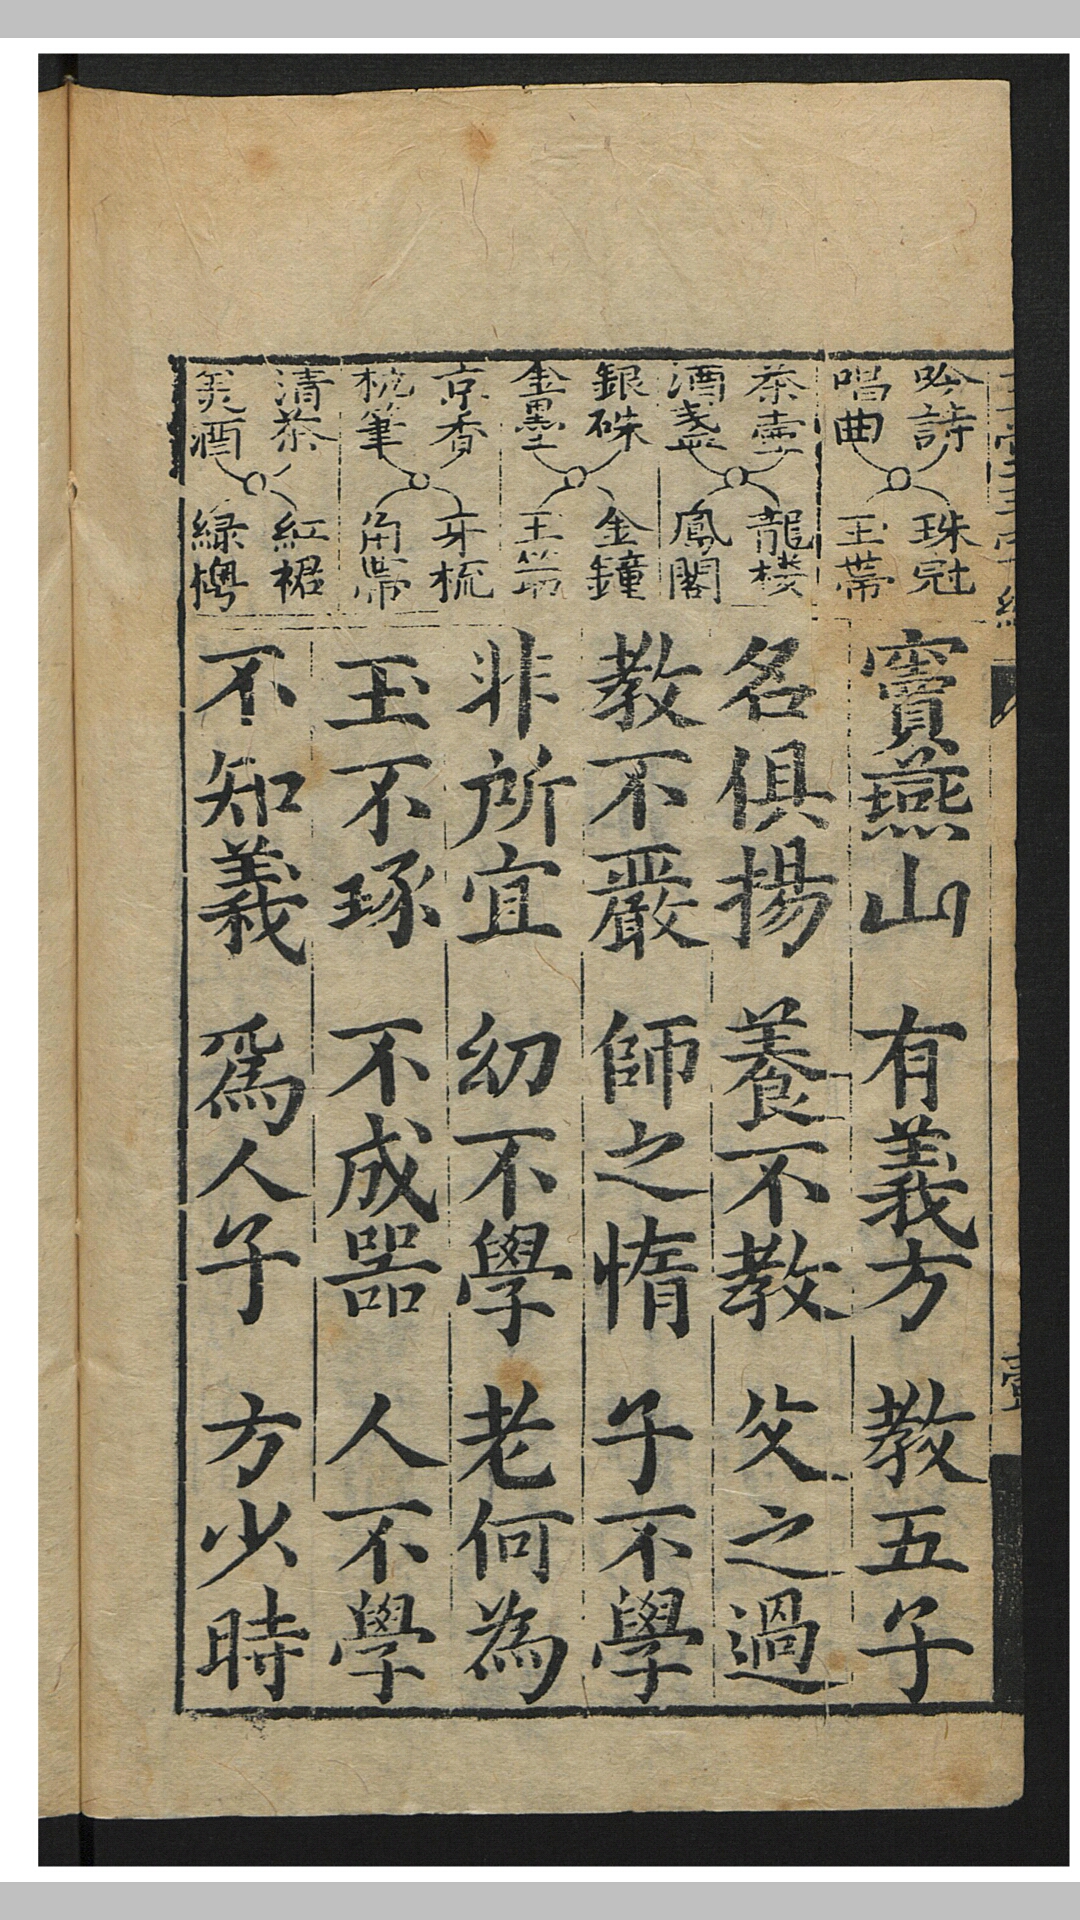 吟詩 珠冠
唱曲 玉帶
茶壷 龍楼
酒盞 鳳閣
銀硃 金鐘
金墨 玉筯
京香 牙梳
梳筆 角帶
清茶 紅裙
美酒 緑
竇燕山 有義方 教五子
名俱揚 養不教 父之過
教不嚴 師之惰 子不學
非所宜 幼不學 老何為
玉不琢 不成器 人不學
不知義 爲人子 方少時